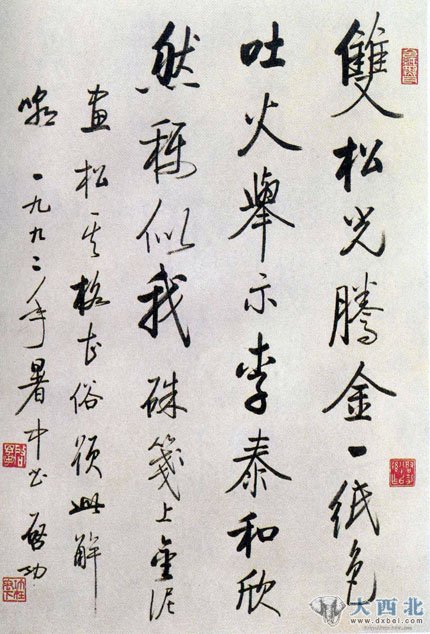 雙松光騰金一紙色
吐火舉示李泰和欣
然稱似我硃箋上金泥
畫松其格甚俗賴此解
嘲 一九九二年暑中書 啓功
大西北
www.dxbei.com